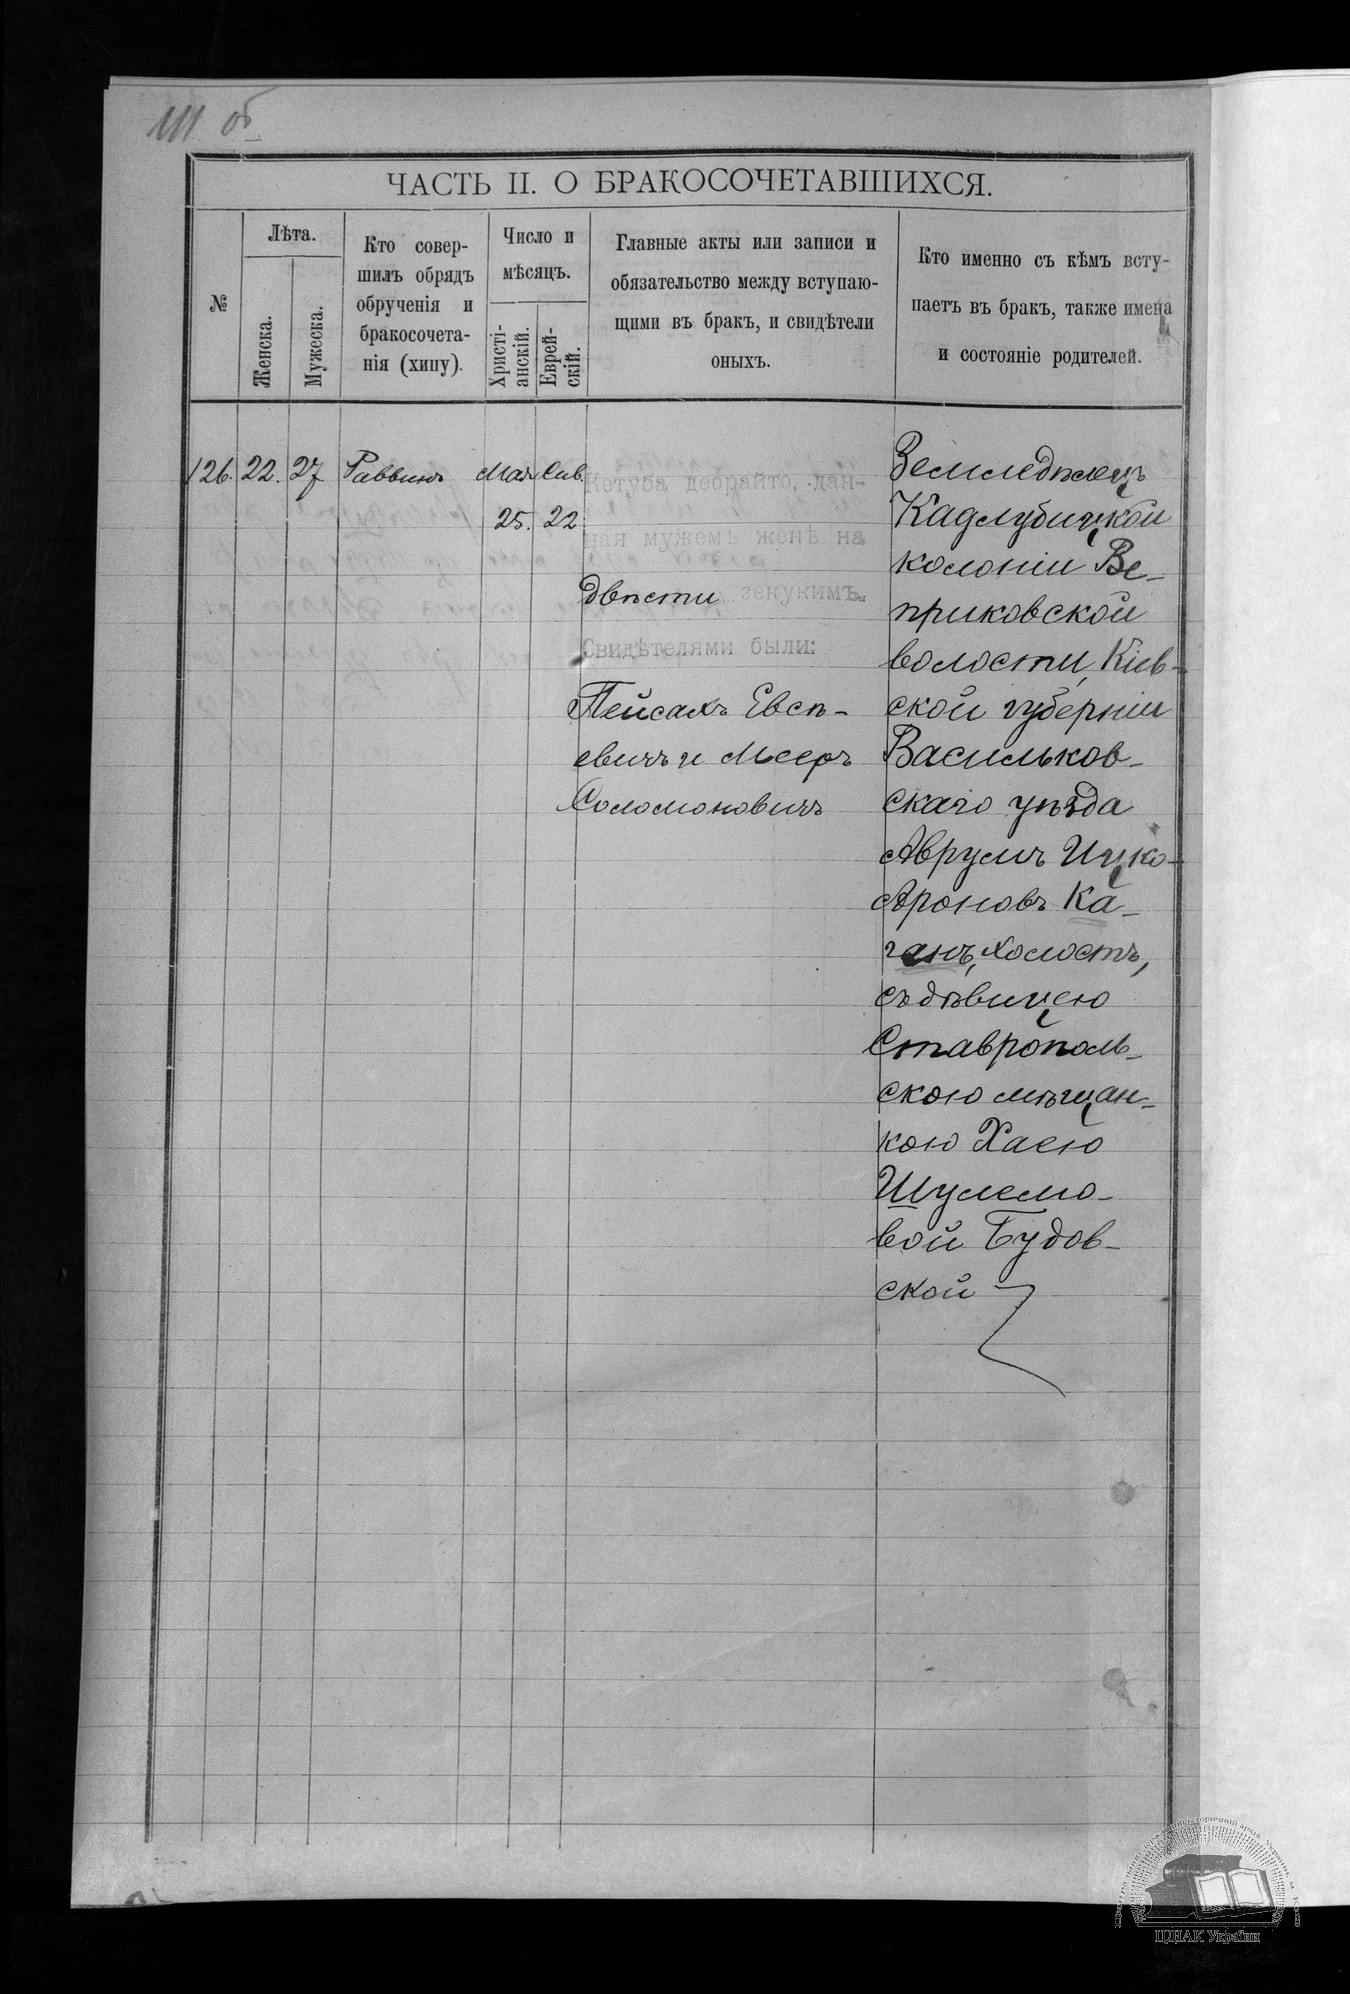 111 об
ЧАСТЬ II. О БРАКОСОЧЕТАВШИХСЯ.
№
Лѣта.
Женска.
Мужеска.
Кто совер-
шилъ обрядъ
обрученія и
бракосочета-
нія (хипу).
Число и
мѣсяцъ.
Христі-
анскій.
Еврей-
скій.
Главные акты или записи и
обязательство между вступаю-
щими въ брак, и свидѣтели
оныхъ.
Кто именно съ кѣмъ всту-
паетъ въ брак, также имена
и состояніе родителей.
126. 22. 27 Раввинъ Мая Сив.
25. 22
Кетуба деорайто, дан-
ная мужемъ женѣ на
двѣсти зекукимъ.
Свидѣтелями были:
Пейсахъ Евсѣ-
евичъ и Мееръ
Соломоновичъ
Земледѣлецъ
Кадлубицкой
колоніи Ве-
приковской
волости, Кіев-
ской губерніи
Васильков-
скаго уѣзда
Аврумъ Ицко-
Ароновъ Ка-
ганъ, холостъ,
съ дѣвицею
Ставрополь-
скою мѣщан-
кою Хаею
Шулемо-
вой Будов-
ской
ЦДІАК України